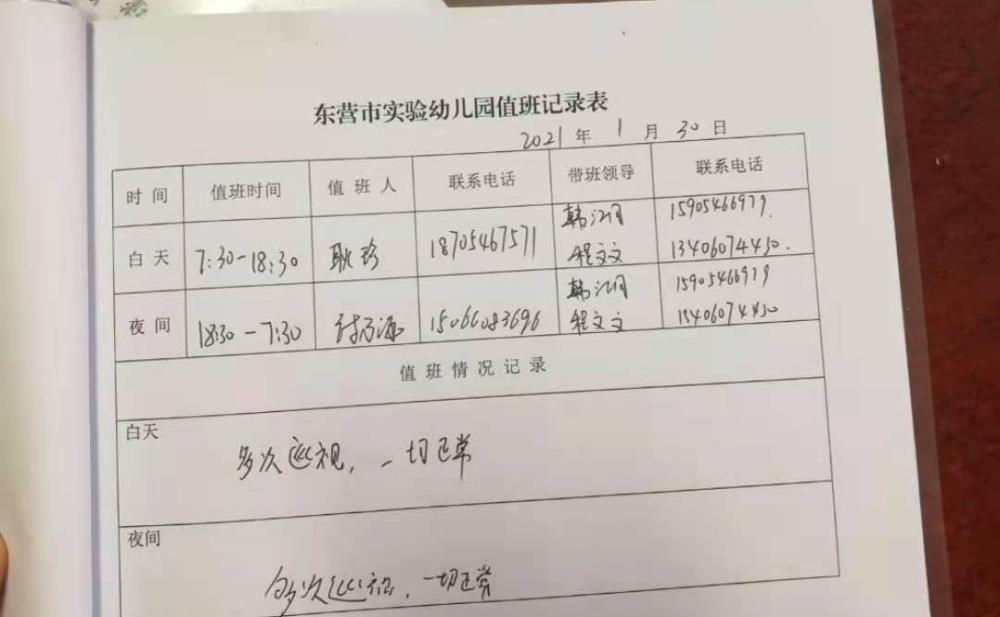 东营市实验幼儿园值班记录表
2021 年 1 月 30 日
时间 值班时间 值班人 联系电话 带班领导 联系电话
白天 7:30-18:30 耿珍 18705467571 韩江 15905466979.
程文文 13406074450.
夜间 18:30-7:30 15066083696 韩江 15905466979
程文文 13406074450
值班情况记录
白天
多次巡视，一切正常
夜间
多次巡视，一切正常